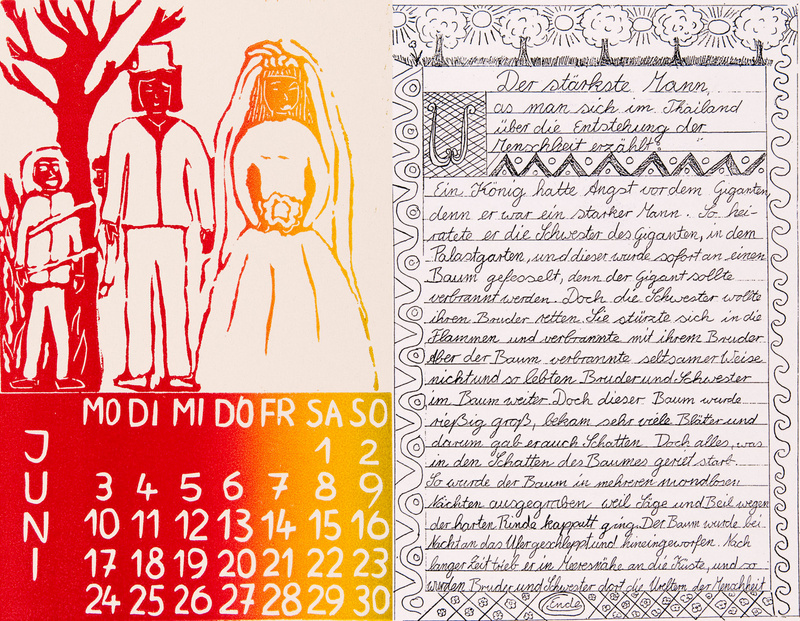 MO DI MI DO FR SA SO
JUNI
1 2
3 4 5 6 7 8 9
10 11 12 13 14 15 16
17 18 19 20 21 22 23
24 25 26 27 28 29 30
Der stärkste Mann,
Was man sich im Thailand
über die Entstehung der
Menschheit erzählt?
Ein König hatte Angst vor dem Giganten,
denn er war ein starker Mann. So hei-
ratete er die Schwester des Giganten, in dem
Palastgarten, und dieser wurde sofort an einen
Baum gefesselt, denn der Gigant sollte
verbrannt werden. Doch die Schwester wollte
ihren Bruder retten. Sie stürzte sich in die
Flammen und verbrannte mit ihrem Bruder.
Aber der Baum verbrannte seltsamer Weise
nicht und so lebten Bruder und Schwester
im Baum weiter. Doch dieser Baum wurde
rießig groß, bekam sehr viele Blätter und
darum gab er auch Schatten. Doch alles, was
in den Schatten des Baumes geriet starb.
So wurde der Baum in mehreren mondlosen
Nächten ausgegraben weil Säge und Beil wegen
der harten Rinde kapputt ging. Der Baum wurde bei
Nacht an das Ufer geschleppt und hineingeworfen. Nach
langer Zeit trieb er in Meeresnähe an die Küste, und so
wurden Bruder und Schwester dort die Ureltern der Menschheit
Ende